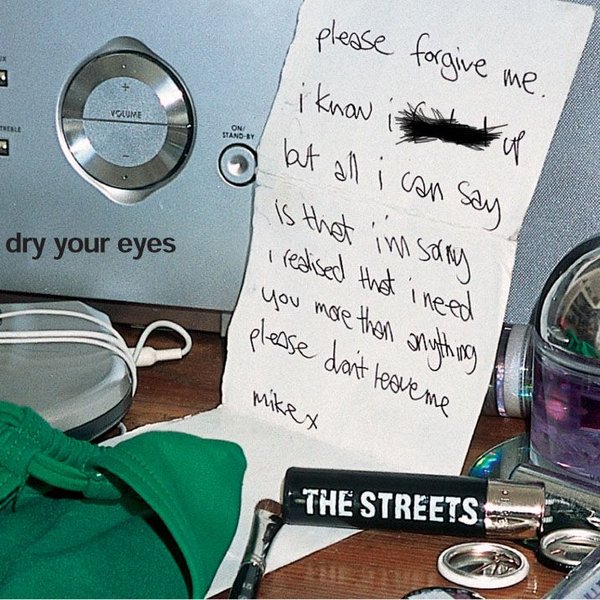 please forgive me.
i know i up
but all i can say
is that i'm sorry
i realised that i need
you more than anything
please don't leave me
mike x
VOLUME
ON/
STAND-BY
TREBLE
dry your eyes
THE STREETS